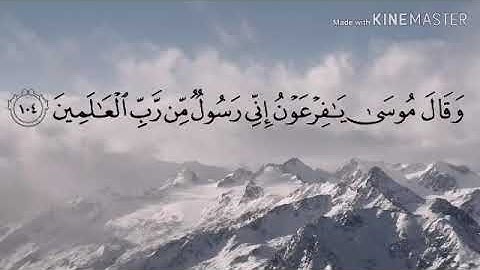 Made with KINEMASTER
وَقَالَ مُوسَىٰ يَـٰفِرْعَوْنُ إِنِّى رَسُولٌ مِّن رَّبِّ ٱلْعَـٰلَمِينَ ١٠٤